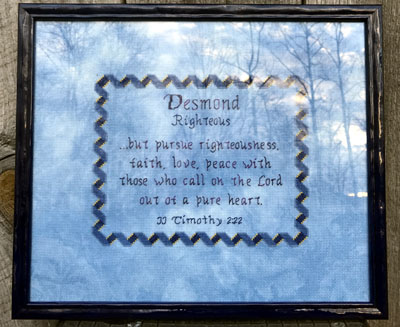 Desmond
Righteous
...but pursue righteousness,
faith, love, peace with
those who call on the Lord
out of a pure heart.
II Timothy 2:22